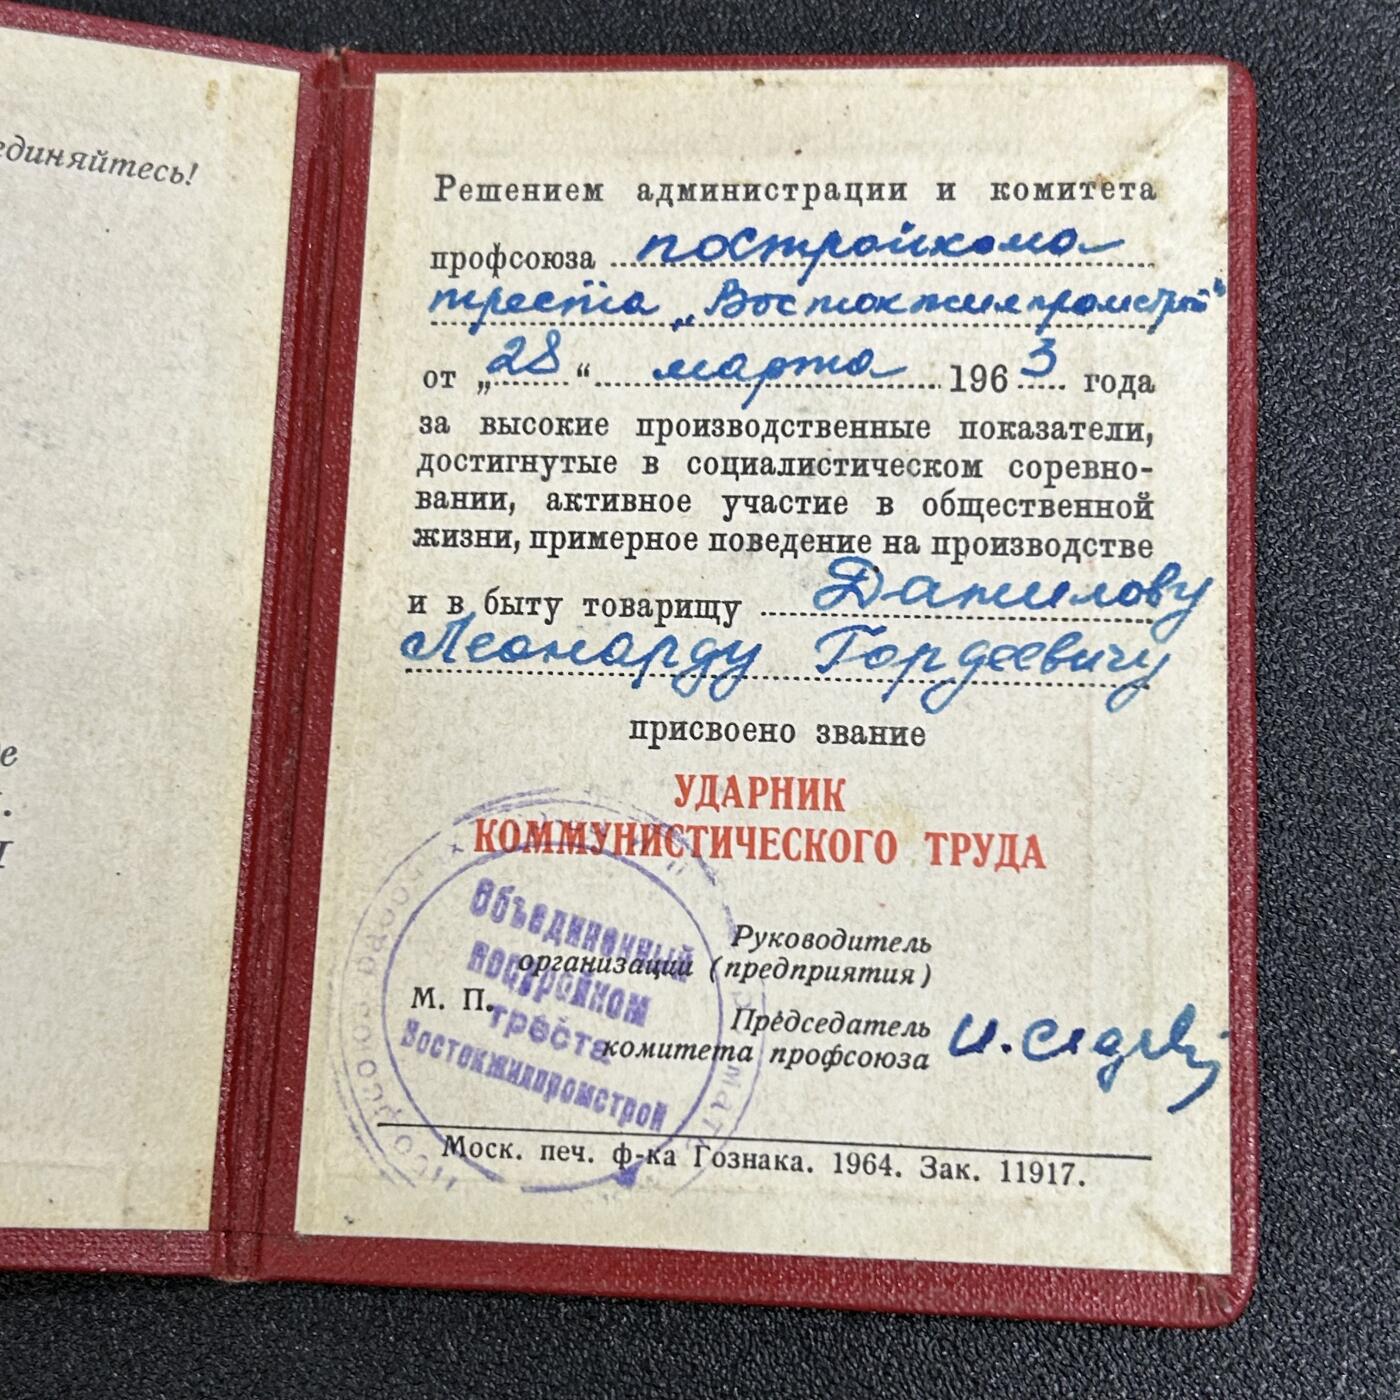 единяйтесь!
Решением администрации и комитета
профсоюза постройкома
треста „Востокжилпромстрой"
от „28“ марта 1963 года
за высокие производственные показатели,
достигнутые в социалистическом соревно-
вании, активное участие в общественной
жизни, примерное поведение на производстве
и в быту товарищу Данилову
Леонарду Гордеевичу
присвоено звание
УДАРНИК
КОММУНИСТИЧЕСКОГО ТРУДА
Объединенный
постройком
треста
Востокжилпромстрой
Руководитель
организации (предприятия)
М. П.
Председатель
комитета профсоюза
Моск. печ. ф-ка Гознака. 1964. Зак. 11917.